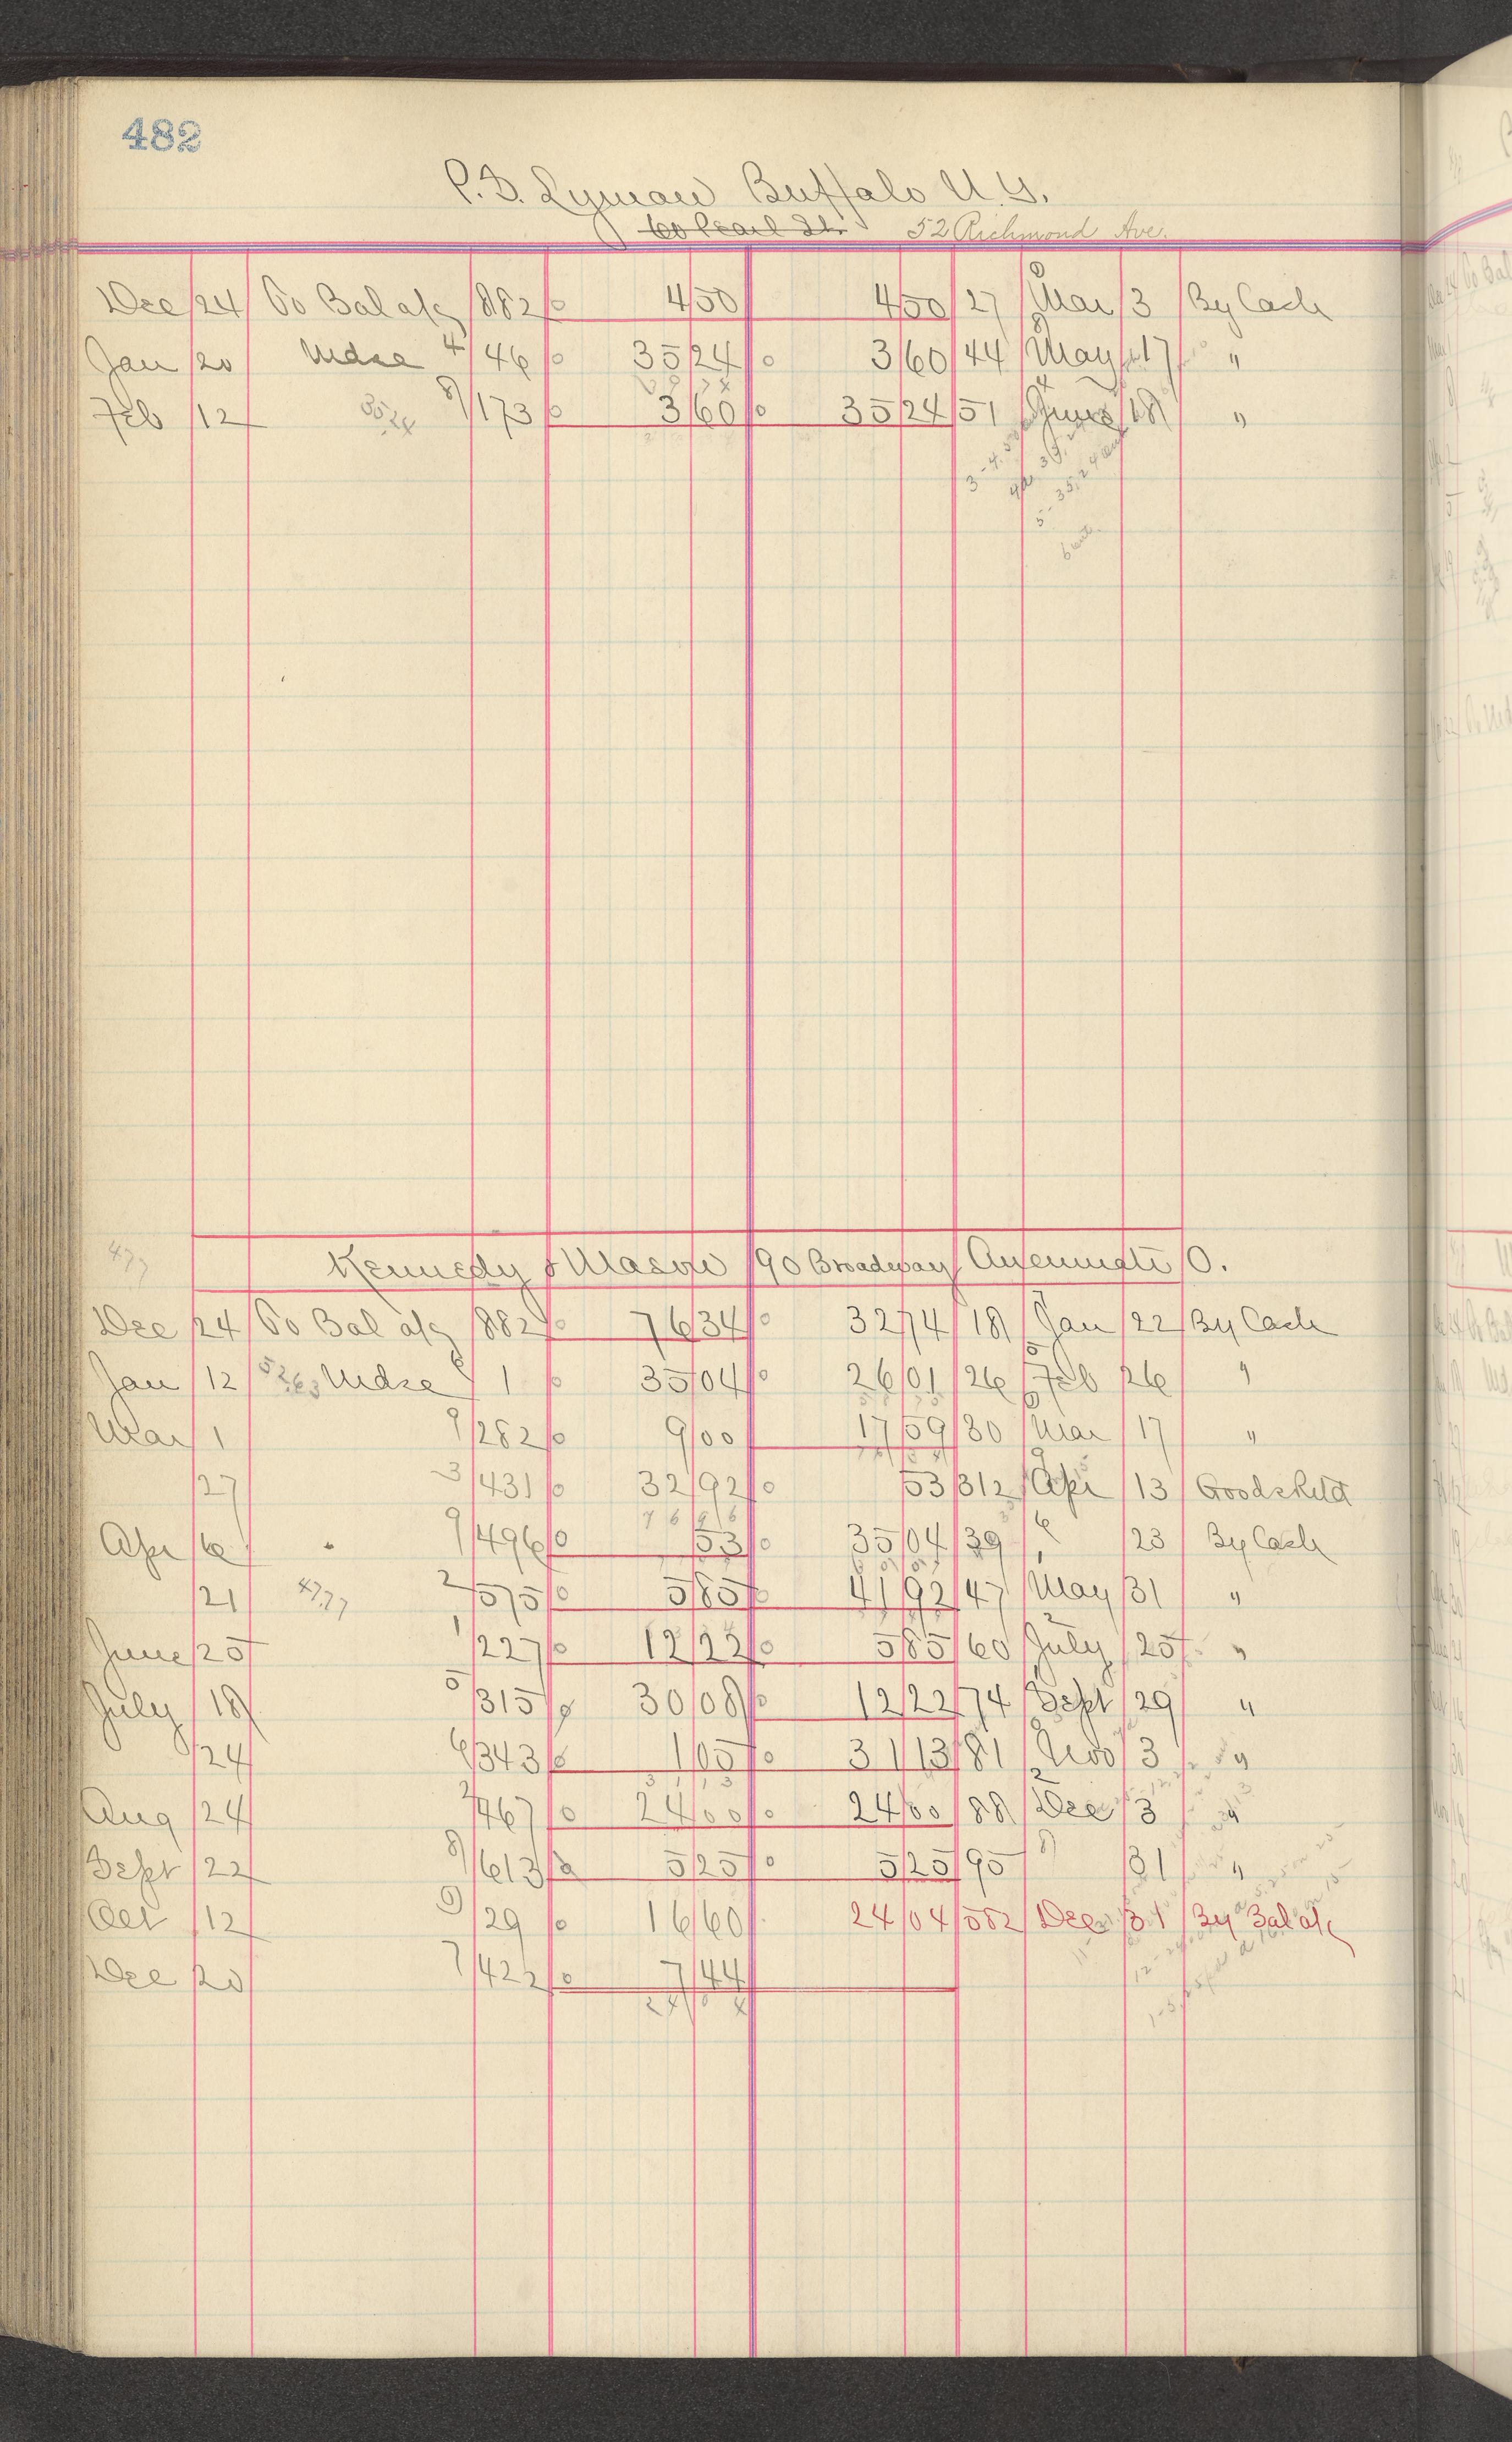 482
P. D. Lyman Buffalo N. Y.
60 Pearl St. 52 Richmond Ave.
Dec 24 To Bal a/c 882 0 4 50 4 50 27 Mar 3 By Cash
Jan 20 Mdse 4/46 0 35 24 0 3 60 44 May 17 "
Feb 12 35.24 8/173 0 3 60 0 35 24 51 June 18 "
477
Kennedy & Mason 190 Broadway Cincinnati O.
Dec 24 To Bal a/c 882 0 76 34 0 32 74 18 Jan 22 By Cash
Jan 12 52.63 Mdse 6/1 0 35 04 0 26 01 26 Feb 26 "
Mar 1 9/282 0 9 00 17 59 30 Mar 17 "
27 3/431 0 32 92 0 53 312 Apr 13 Goods Retd
76 96
Apr 6 9/496 0 53 0 35 04 39 " 23 By Cash
21 47.77 2/575 0 5 85 0 41 92 47 May 31 "
June 25 1/227 0 12 22 0 5 85 60 July 25 "
July 18 5/315 0 30 08 0 12 22 74 Sept 29 "
24 6/343 0 1 05 0 31 13 81 Nov 3 "
31 13
Aug 24 2/467 0 24 00 0 24 00 88 Dec 3 "
Sept 22 8/613 0 5 25 0 5 25 95 31 "
Oct 12 9/29 0 16 60 24 04 582 Dec 31 By Bal a/c
Dec 20 7/422 0 7 44
24 04